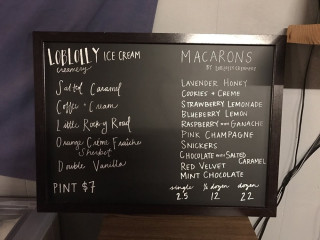 LOBLOLLY ICE CREAM
creamery
Salted Caramel
Coffee + Cream
Little Rocky Road
Orange Crème Fraîche
Sherbet
Double Vanilla
PINT $7
MACARONS
BY
LAVENDER HONEY
COOKIES + CREME
STRAWBERRY LEMONADE
BLUEBERRY LEMON
RASPBERRY GANACHE
PINK CHAMPAGNE
SNICKERS
CHOCOLATE SALTED
CARAMEL
RED VELVET
MINT CHOCOLATE
single ½ dozen dozen
2.5 12 22